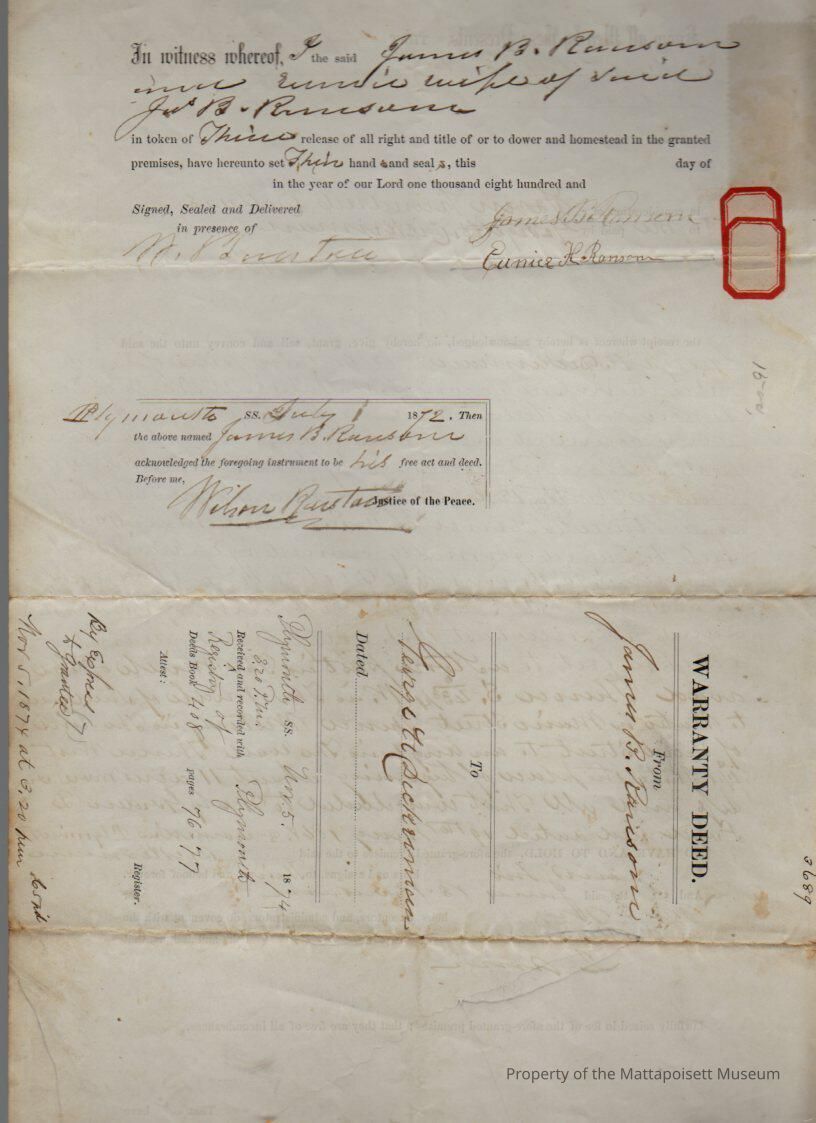 In witness whereof, I the said James B. Ransom
and Eunice wife of said
Jas B. Ransom
in token of Their release of all right and title of or to dower and homestead in the granted
premises, have hereunto set Their hand s and seal s, this day of
in the year of our Lord one thousand eight hundred and
Signed, Sealed and Delivered
in presence of
James B. Ransom
Eunice H. Ransom
Plymouth SS. July 1 1872. Then
the above named James B. Ransom
acknowledged the foregoing instrument to be his free act and deed.
Before me,
Wilson Justice of the Peace.
WARRANTY DEED.
From
James B. Ransom
To
George H.
Dated
Plymouth SS. Nov. 5. 1874
3.20 P.M.
Received and recorded with Plymouth
Registry of
Deeds Book 408 pages 76-77
Attest:
Register.
By Express
Nov. 5, 1874 at 3.20 pm
3689
Property of the Mattapoisett Museum